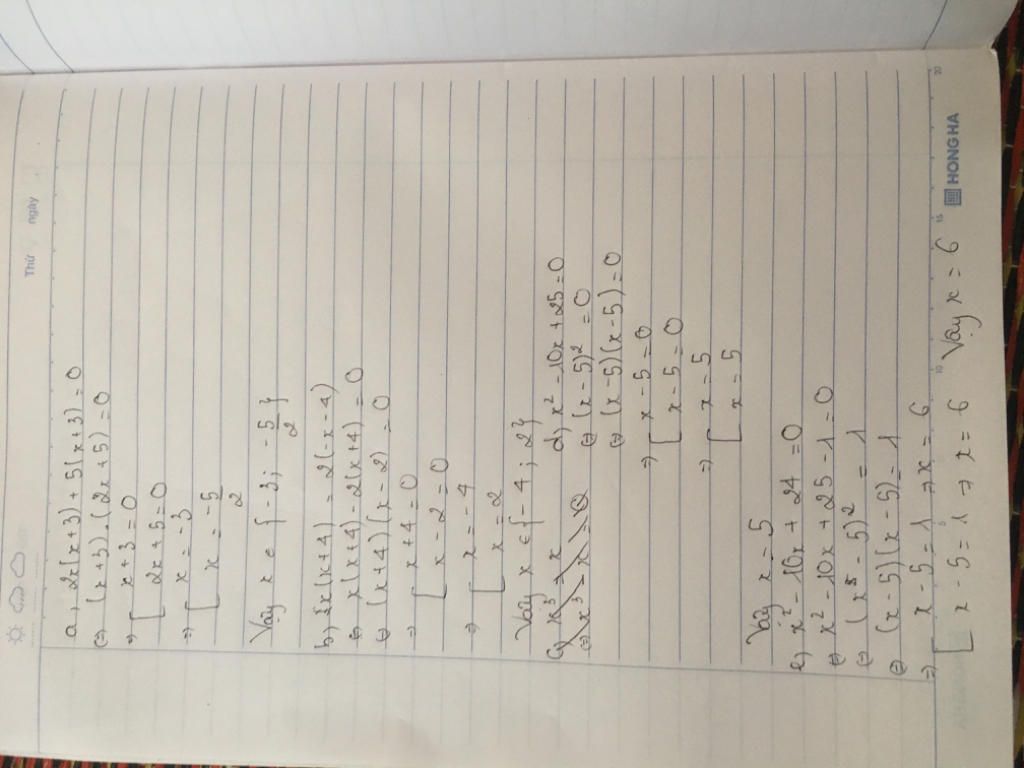 Thứ ngày
a, 2x(x+3) + 5(x+3) = 0
(=) (x+3).(2x+5) = 0
=) [ x+3 = 0
[ 2x+5 = 0
=) [ x = -3
[ x = -5/2
Vậy x ∈ {-3; -5/2}
(=) x(x+4) - 2(x+4) = 0
(=) (x+4)(x-2) = 0
=) [ x+4 = 0
[ x-2 = 0
=) [ x = -4
[ x = 2
Vậy x ∈ {-4; 2}
c, x³ = x
(=) x³ - x = 0
d, x² - 10x + 25 = 0
(=) (x-5)² = 0
(=) (x-5)(x-5) = 0
=) [ x-5 = 0
[ x-5 = 0
=) [ x = 5
[ x = 5
Vậy x = 5
e, x² - 10x + 24 = 0
(=) x² - 10x + 25 - 1 = 0
(=) (x - 5)² = 1
(=) (x-5)(x-5) = 1
=) [ x-5 = 1 => x = 6
[ x-5 = 1 => x = 6 Vậy x = 6
10 15 20
HONG HA